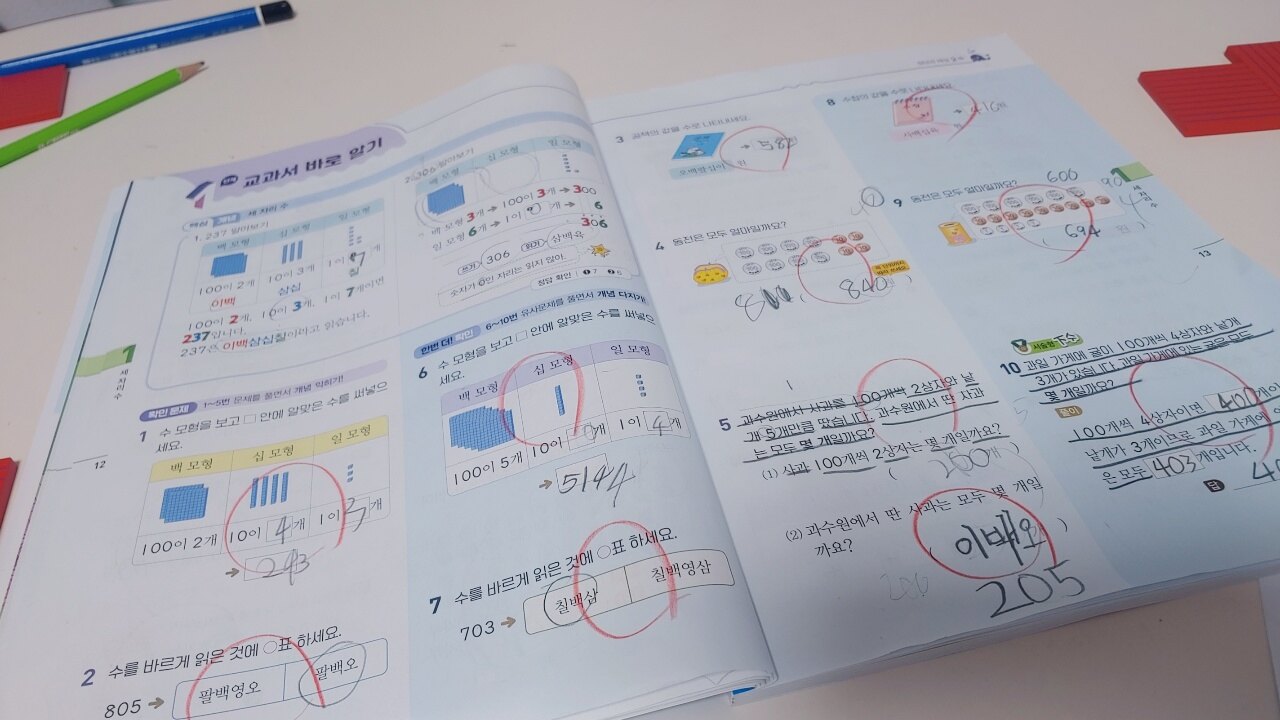 교과서 바로 알기
핵심 개념 세 자리 수
1. 237 알아보기
백 모형 십 모형 일 모형
100이 2개 10이 3개 1이 7개
이백 삼십 칠
100이 2개, 10이 3개, 1이 7개이면
237입니다.
237은 이백삼십칠이라고 읽습니다.
2. 306 알아보기
백 모형 십 모형 일 모형
백 모형 3개 → 100이 3개 → 300
일 모형 6개 → 1이 개 → 6
306
쓰기 306 읽기 삼백육
숫자가 0인 자리는 읽지 않아.
정답 확인 | ❶ 7 ❷ 6
확인 문제 1~5번 문제를 풀면서 개념 익히기!
1 수 모형을 보고 □ 안에 알맞은 수를 써넣으
세요.
백 모형 십 모형 일 모형
100이 2개 10이 4개 1이 3개
→ 243
2 수를 바르게 읽은 것에 ○표 하세요.
805 → 팔백영오 팔백오
한번 더! 확인 6~10번 유사문제를 풀면서 개념 다지기!
6 수 모형을 보고 □ 안에 알맞은 수를 써넣으
세요.
백 모형 십 모형 일 모형
100이 5개 10이 개 1이 4개
→
7 수를 바르게 읽은 것에 ○표 하세요.
703 → 칠백삼 칠백영삼
1
세 자리 수
12
3 공책의 값을 수로 나타내세요.
→ 원
오백팔십 원
4 동전은 모두 얼마일까요?
800 ( 840원 )
5 과수원에서 사과를 100개씩 2상자와 낱
개 5개만큼 땄습니다. 과수원에서 딴 사과
는 모두 몇 개일까요?
(1) 사과 100개씩 2상자는 몇 개일까요?
( 200개 )
(2) 과수원에서 딴 사과는 모두 몇 개일
까요?
( 이백오 )
205
8 수첩의 값을 수로 나타내세요.
→ 원
사백십육 원
9 동전은 모두 얼마일까요?
600 90 4
( 694 원 )
서술형 下수
10 과일 가게에 귤이 100개씩 4상자와 낱개
3개가 있습니다. 과일 가게에 있는 귤은 모두
몇 개일까요?
풀이
100개씩 4상자이면 400개이고
낱개가 3개이므로 과일 가게에
은 모두 403개입니다.
답
1
세 자리 수
13